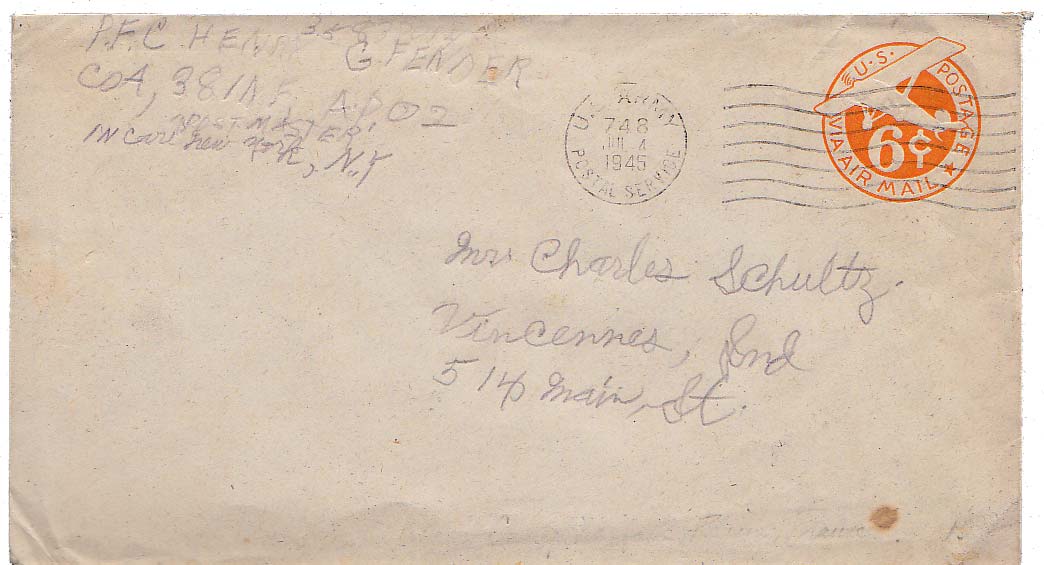 P.F.C HENRY G FENDER
CoA, 38 INF, A.P.O 2
POSTMASTER
IN Care New York, N.Y
U.S. ARMY
748
JUL 4
1945
POSTAL SERVICE
U.S. POSTAGE
6¢
VIA AIR MAIL
Mr. Charles Schultz.
Vincennes, Ind
514 Main, St.